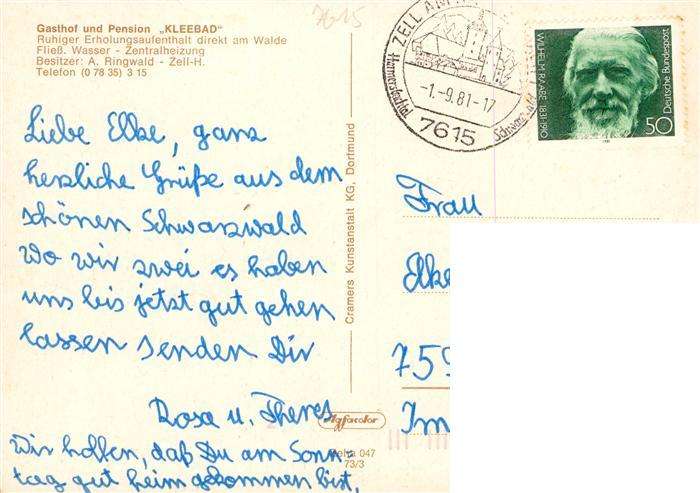 Gasthof und Pension „KLEEBAD"
Ruhiger Erholungsaufenthalt direkt am Walde
Fließ. Wasser - Zentralheizung
Besitzer: A. Ringwald - Zell-H.
Telefon (0 78 35) 3 15
7615
ZELL AM
-1.-9.81-17
7615
WILHELM RAABE 1831-1910
Deutsche Bundespost
50
Liebe Elke, ganz
herzliche Grüße aus dem
schönen Schwarzwald
Wo wir zwei es haben
uns bis jetzt gut gehen
lassen senden Dir
Rosa u. Theres
Wir hoffen, daß Du am Sonn-
tag gut heim gekommen bist.
Cramers Kunstanstalt KG, Dortmund
Agfacolor
047
73/3
Frau
Elke
759
Im